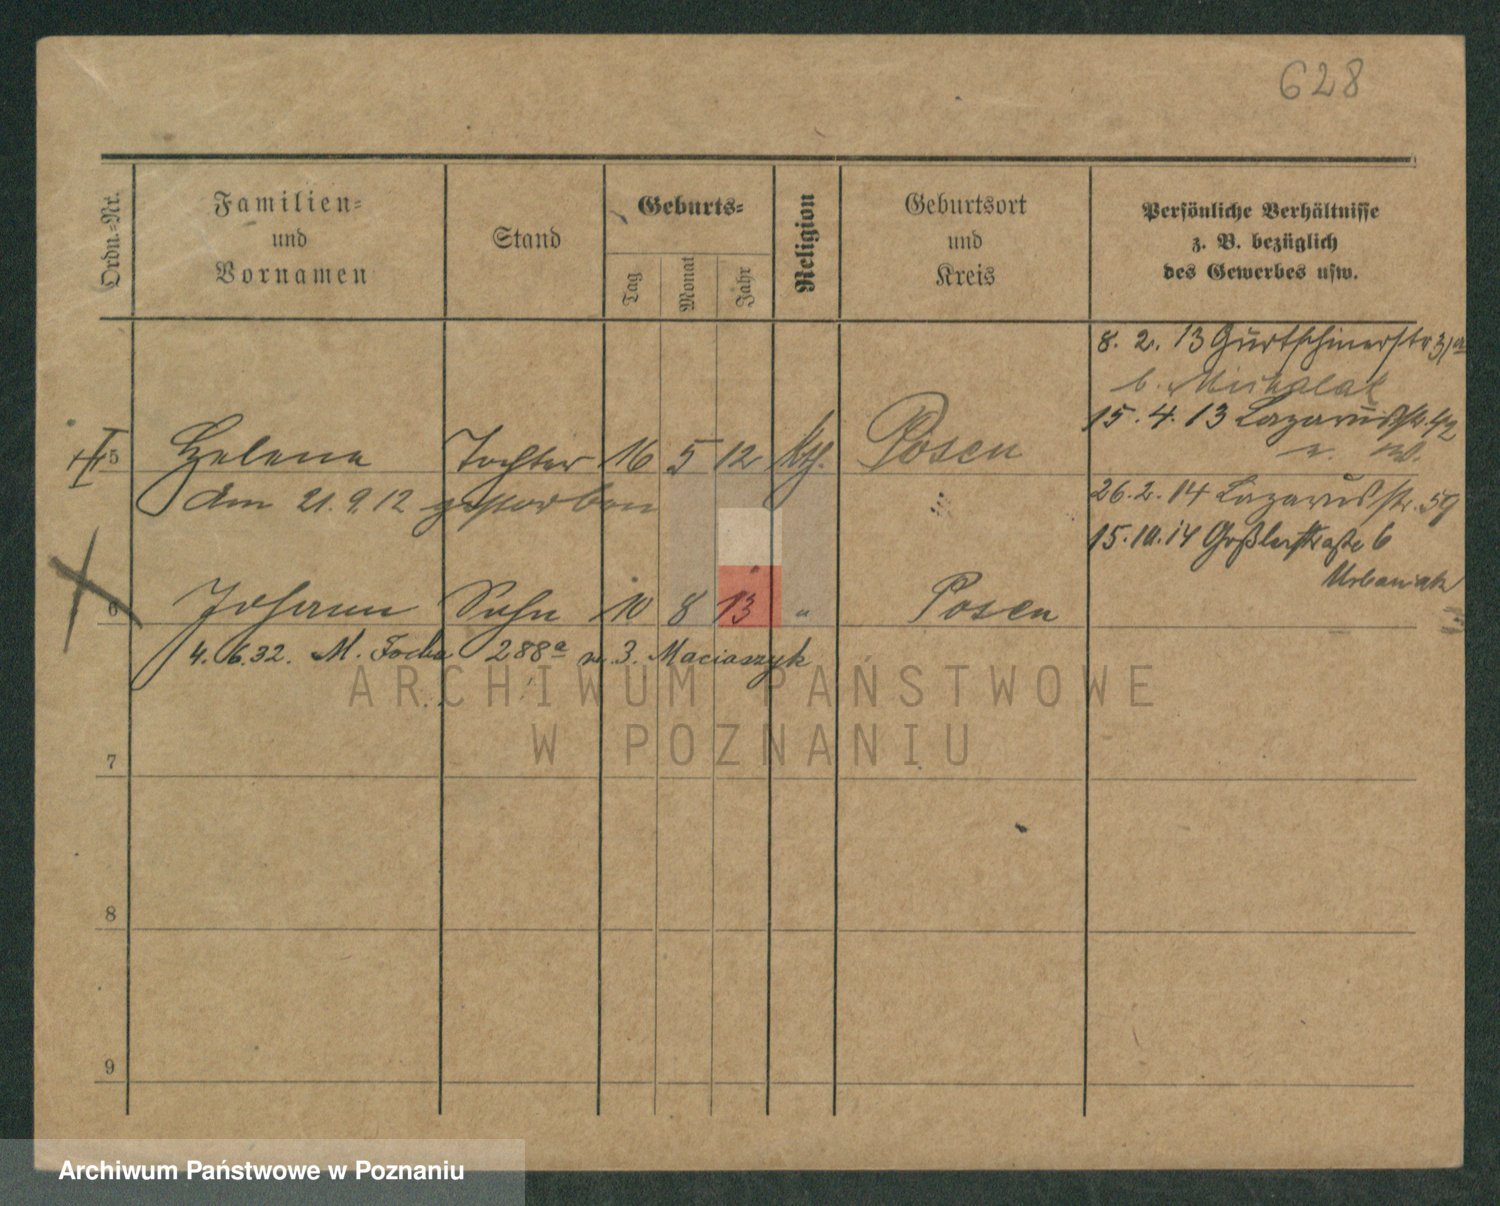 628
Ordn.-Nr.
Familien-
und
Vornamen
Stand
Geburts-
Tag
Monat
Jahr
Religion
Geburtsort
und
Kreis
Persönliche Verhältnisse
z. B. bezüglich
des Gewerbes usw.
8. 2. 13 Gurtschinerstr. 31a
b. Michalak
15. 4. 13 Lazarusstr. 42
5 Helene Tochter 16 5 12 kth. Posen
am 21. 9. 12 gestorben
26. 2. 14 Lazarusstr. 59
15. 10. 14 Goßlerstraße 6
Urbaniak
6 Johann Sohn 10 8 13 " Posen
4. 6. 32. M. Focha 288a m. 3. Maciaszyk
ARCHIWUM PAŃSTWOWE
W POZNANIU
7
8
9
Archiwum Państwowe w Poznaniu